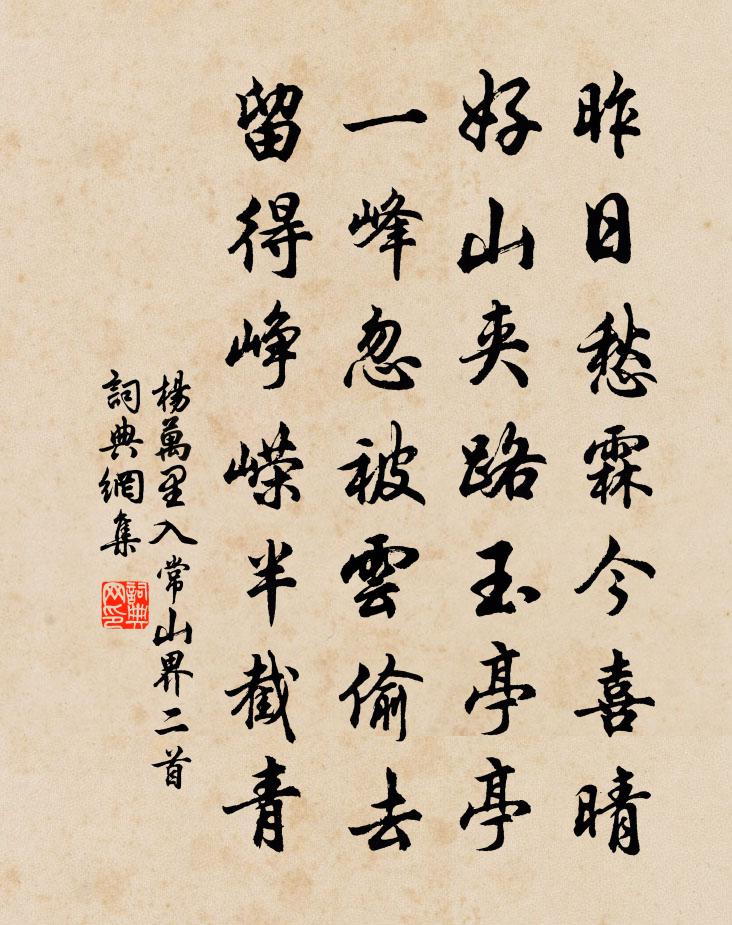 昨日愁霖今喜晴
好山夾路玉亭亭
一峰忽被雲偷去
留得崢嶸半截青
楊萬里入常山界二首
詞典網集
詞典
网印